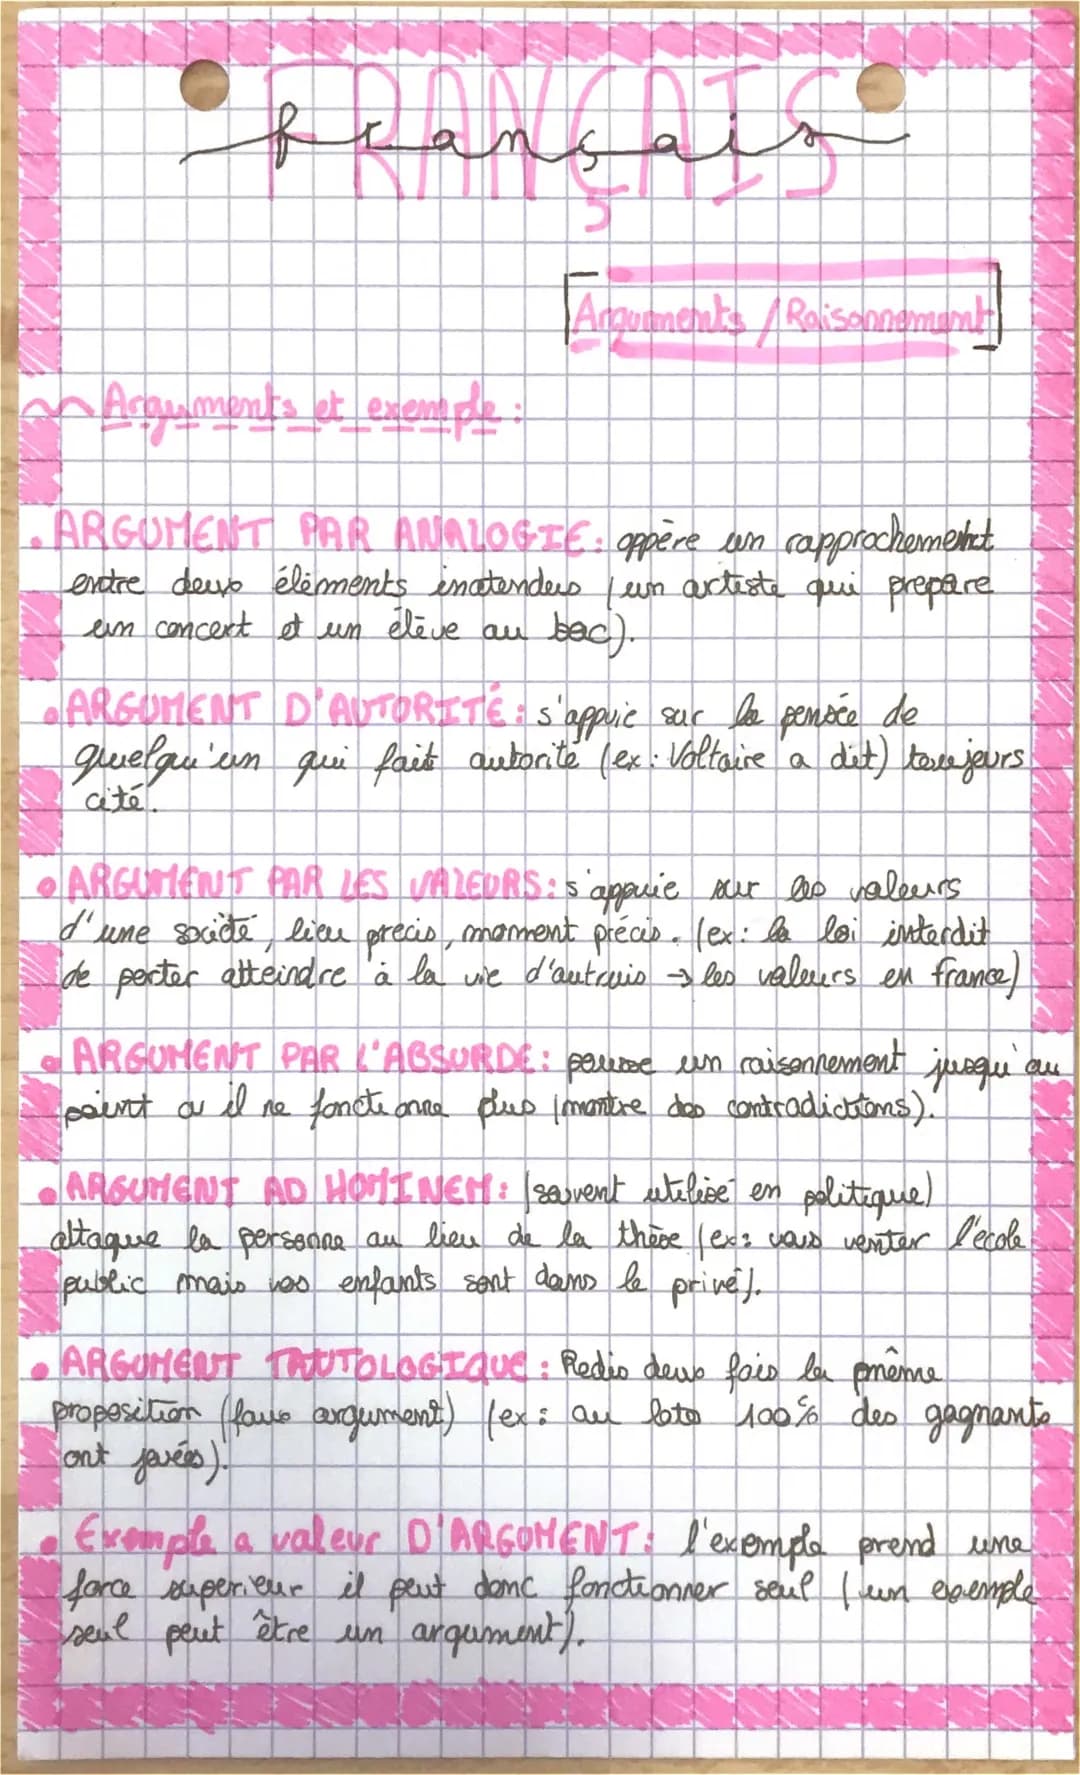 FRANÇAIS
français
Arguments / Raisonnement
Arguments et exemple :
. ARGUMENT PAR ANALOGIE : oppère un rapprochement
entre deux éléments inatendus (un artiste qui prepare
un concert et un élève au bac).
• ARGUMENT D'AUTORITÉ : s'appuie sur la pensée de
quelqu'un qui fait autorité (ex : Voltaire a dit) toujours
cité.
• ARGUMENT PAR LES VALEURS : s'appuie sur les valeurs
d'une société, lieu precis, moment précis. (ex : la loi interdit
de porter atteindre à la vie d'autruis → les valeurs en france)
• ARGUMENT PAR L'ABSURDE : pousse un raisonnement jusqu'au
point ou il ne fonctionne plus (montre des contradictions).
• ARGUMENT AD HOMINEM : (souvent utilisé en politique)
attaque la personne au lieu de la thèse (ex : vous venter l'école
public mais vos enfants sont dans le privé).
• ARGUMENT TAUTOLOGIQUE : Redis deux fois la même
proposition (faux argument) (ex : au loto 100% des gagnants
ont joués).
• Exemple a valeur D'ARGUMENT : l'exemple prend une
force superieur il peut donc fonctionner seul (un exemple
seul peut être un argument).